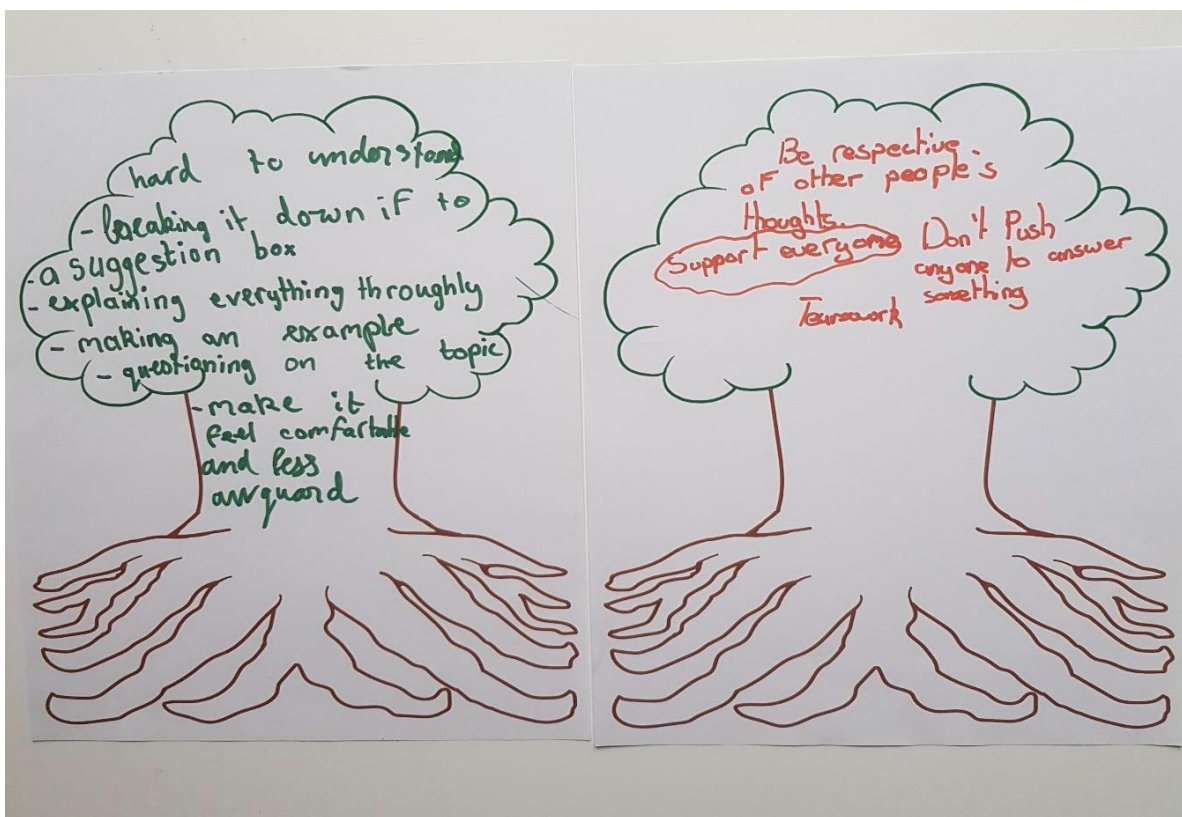 hard to understand
- breaking it down if to
- a suggestion box
- explaining everything throughly
- making an example
- questigning on the topic
- make it
feel comfartable
and less
awquard
Be respective
of other people's
thoughts.
Support everyone
Don't Push
anyone to answer
something
Teamwork